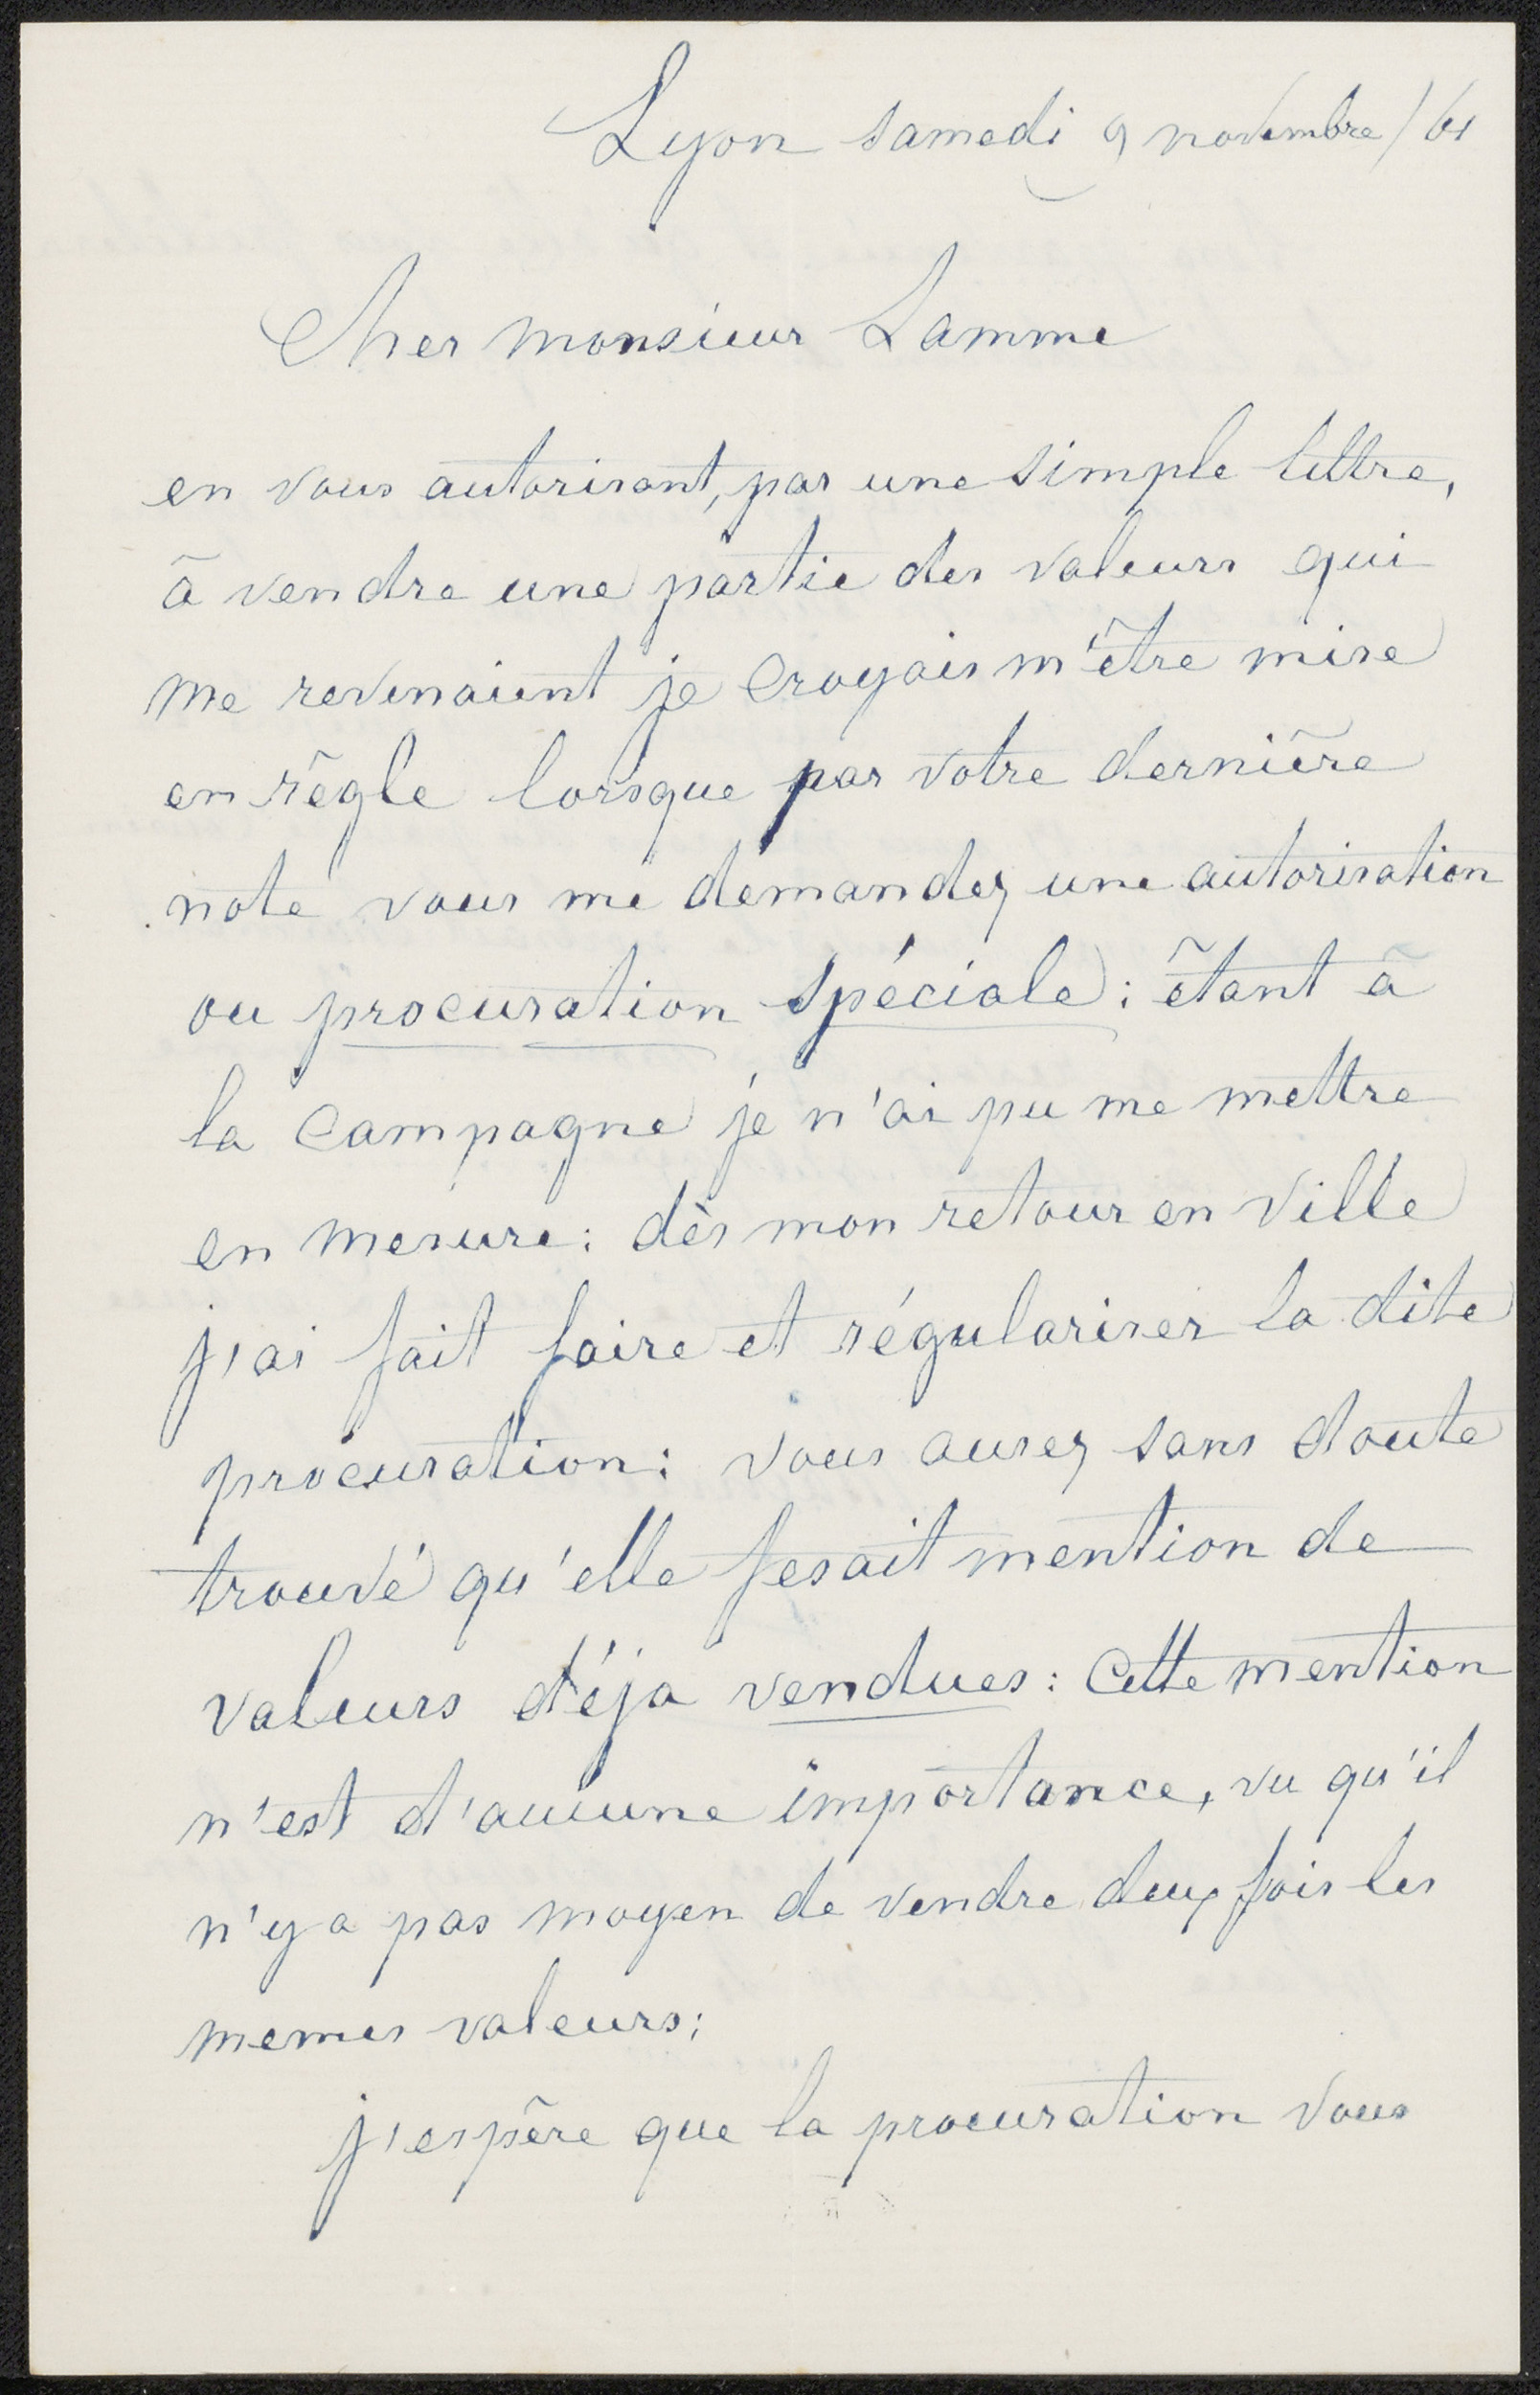 Lyon samedi 9 novembre / 61
Cher monsieur Lamme
en vous autorisant, par une simple lettre,
à vendre une partie des valeurs qui
me revenaient je croyais m'être mise
en règle lorsque par votre dernière
note vous me demandez une autorisation
ou procuration spéciale : étant à
la campagne je n'ai pu me mettre
en mesure : dès mon retour en ville
j'ai fait faire et régulariser la dite
procuration : vous aurez sans doute
trouvé qu'elle fesait mention de
valeurs déja vendues : cette mention
n'est d'aucune importance, vu qu'il
n'y a pas moyen de vendre deux fois les
memes valeurs ;
j'espère que la procuration vous